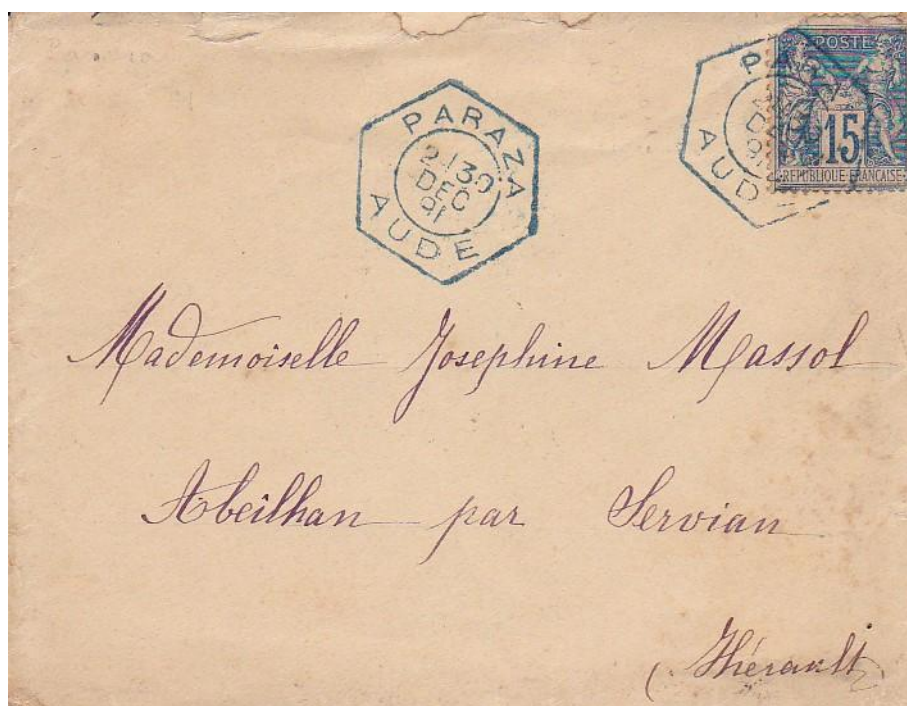 PARAZA
2 /30
DEC
91
AUDE
POSTE
15
REPUBLIQUE FRANCAISE
PA
DEC
91
AUD
Mademoiselle Josephine Massol
Abeilhan par Servian
(Hérault)